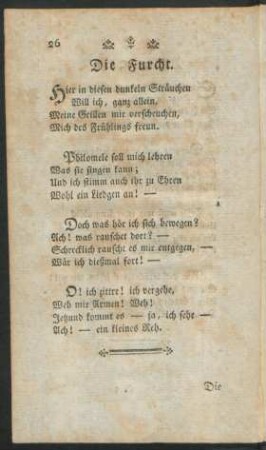 26
Die Furcht.
Hier in diesen dunkeln Sträuchen
Will ich, ganz allein,
Meine Grillen mir verscheuchen,
Mich des Frühlings freun.
Philomele soll mich lehren
Was sie singen kann;
Und ich stimm auch ihr zu Ehren
Wohl ein Liedgen an! —
Doch was hör ich sich bewegen?
Ach! was rauschet dort? —
Schrecklich rauscht es mir entgegen, —
Wär ich dießmal fort! —
O! ich zittre! ich vergehe,
Weh mir Armen! Weh!
Jetzund kommt es — ja, ich sehe —
Ach! — ein kleines Reh.
Die